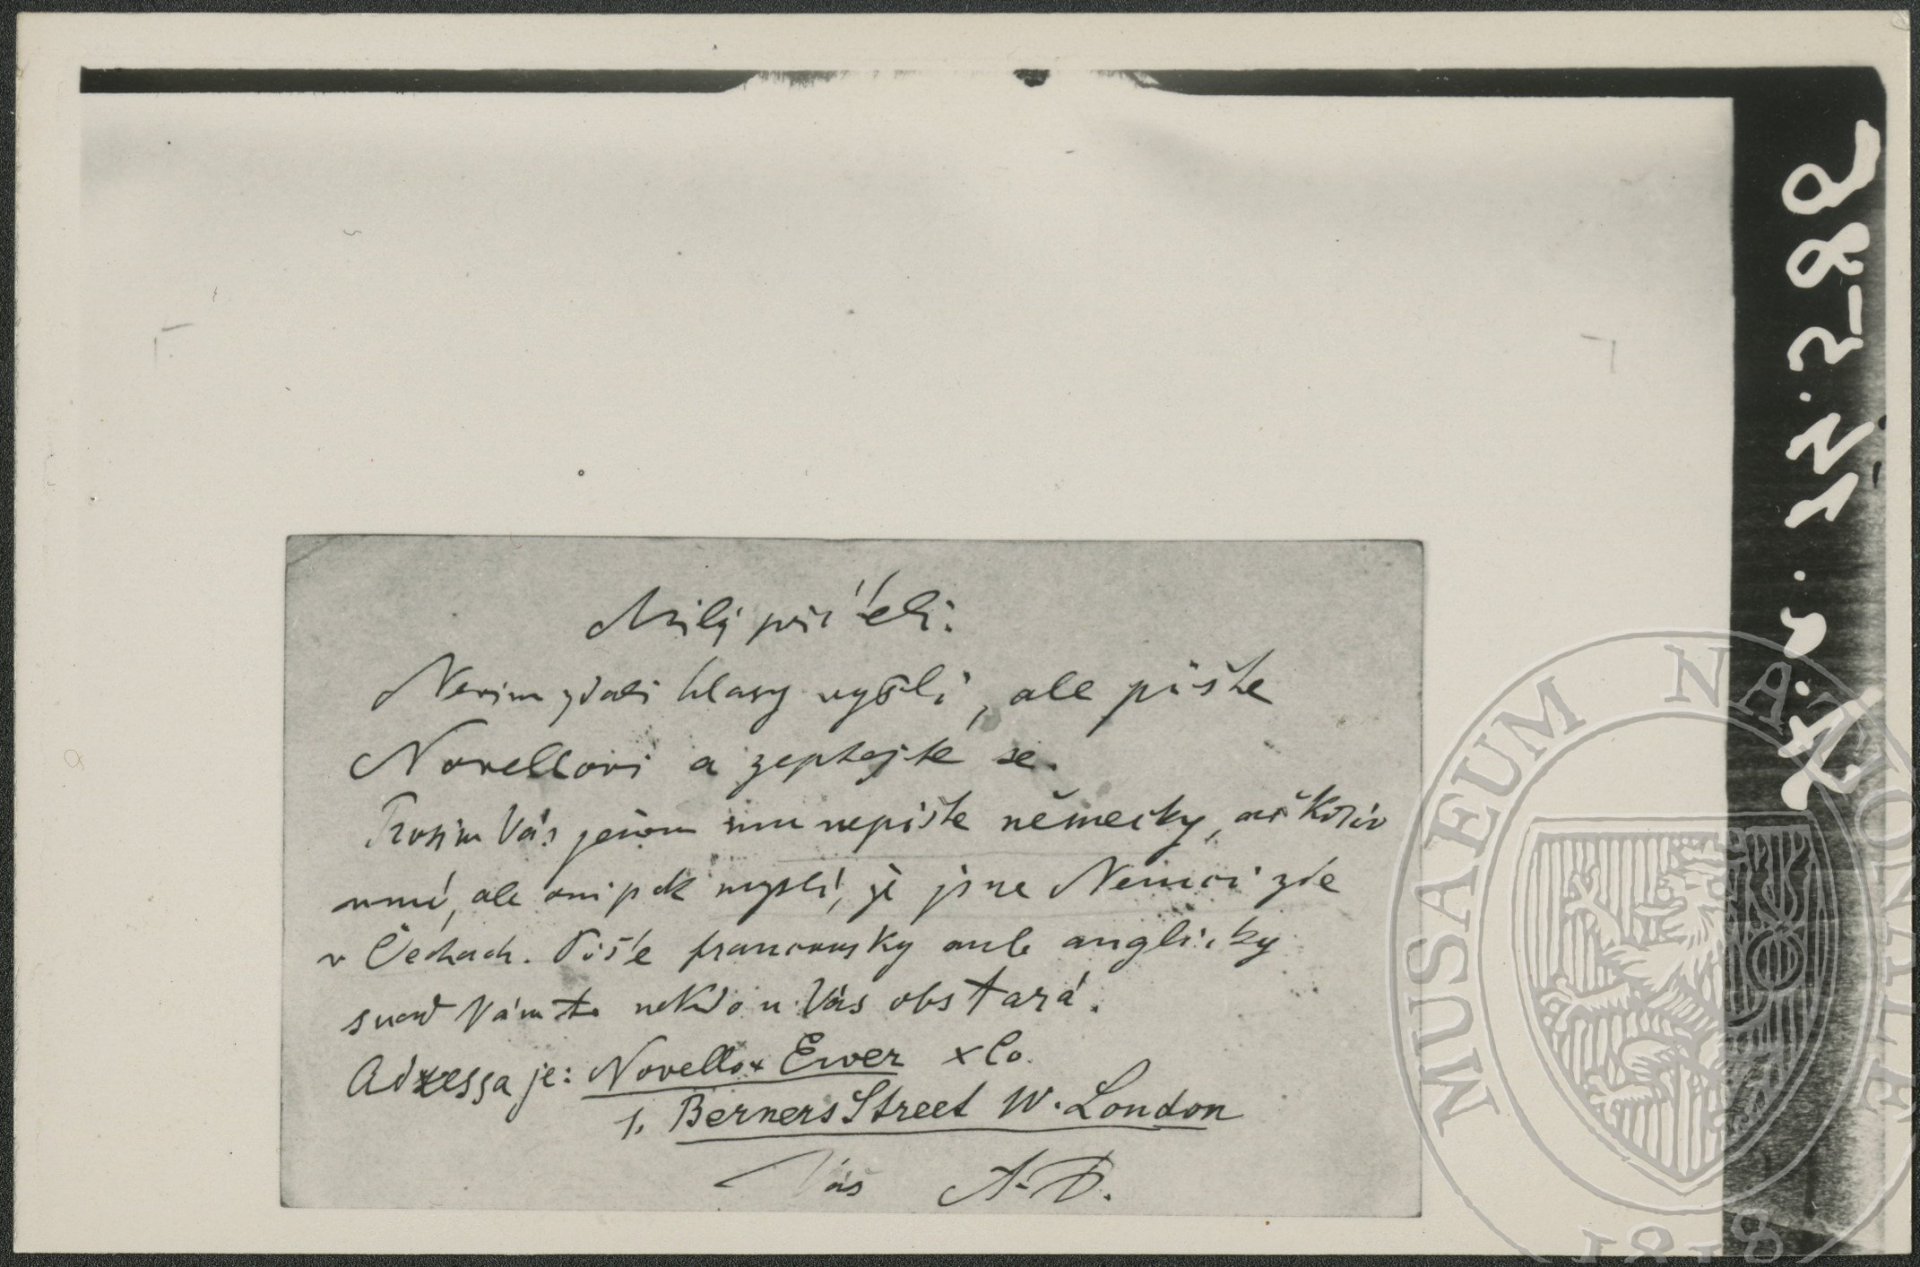 Milý příteli.
Nevim zdali hlasy vyšli, ale pište
Novellovi a zeptejte se.
Prosim Vás jenom mu nepište německy, ačkoliv
umí, ale oni pak myslí, že jsme Němci zde
v Čechach. Pište francouzsky aneb anglicky
snad Vám to někdo u Vás obstará.
Adressa je: Novello x Ewer x Co.
1. Berners Street W. London
Váš A. D.
MUSAEUM NATIONALE
1818